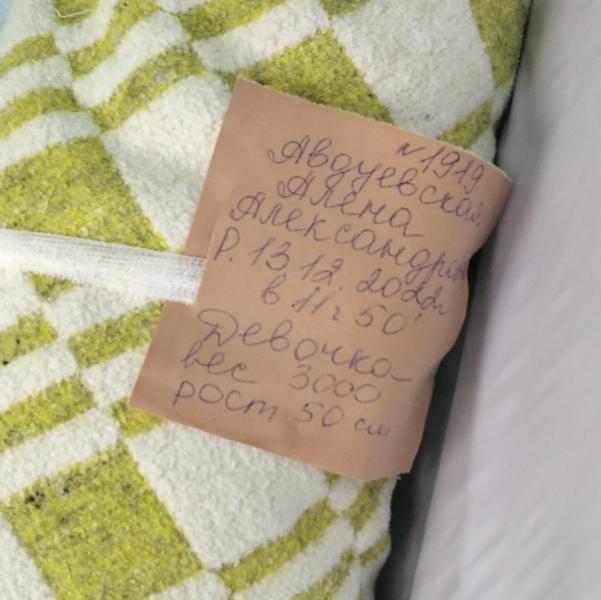 №1919
Авдуевская
Алена
Александров
Р. 13 12. 2022г
в 11ч 50'
Девочка
вес 3000
рост 50 см